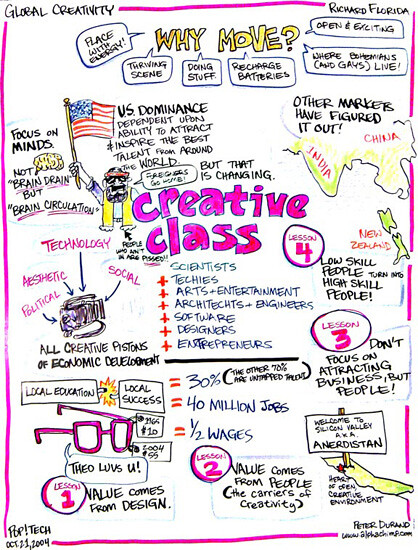 GLOBAL CREATIVITY
RICHARD FLORIDA
WHY MOVE?
PLACE
WITH
ENERGY!
THRIVING
SCENE
DOING
STUFF
RECHARGE
BATTERIES
OPEN & EXCITING
WHERE BOHEMIANS
(AND GAYS) LIVE!
FOCUS ON
MINDS.
NOT
"BRAIN DRAIN"
BUT
"BRAIN CIRCULATION"
U.S. DOMINANCE
DEPENDENT UPON
ABILITY TO ATTRACT
& INSPIRE THE BEST
TALENT FROM AROUND
THE WORLD.
FOREIGNERS
GO HOME!
BUT THAT
IS CHANGING.
PEOPLE
WHO AIN'T
IN ARE PISSED!!
OTHER MARKETS
HAVE FIGURED
IT OUT!
CHINA
INDIA
NEW
ZEALAND
creative
class
TECHNOLOGY
AESTHETIC
POLITICAL
SOCIAL
ALL CREATIVE PISTONS
OF ECONOMIC DEVELOPMENT
SCIENTISTS
+ TECHIES
+ ARTS + ENTERTAINMENT
+ ARCHITECHTS + ENGINEERS
+ SOFTWARE
+ DESIGNERS
+ ENTREPRENEURS
= 30% (THE OTHER 70%
ARE UNTAPPED TALENT)
= 40 MILLION JOBS
= 1/2 WAGES
LESSON
4
LOW SKILL
PEOPLE TURN INTO
HIGH SKILL
PEOPLE!
LESSON
3
DON'T
FOCUS ON
ATTRACTING
BUSINESS, BUT
PEOPLE!
LOCAL EDUCATION
LOCAL
SUCCESS
@ 1965
$10
@ 2004
$55
THEO LUVS U!
LESSON
1
VALUE COMES
FROM DESIGN.
LESSON
2
VALUE COMES
FROM PEOPLE
(the carriers of
Creativity)
WELCOME TO
SILICON VALLEY
A.K.A.
ANERDISTAN
HEART OF
OPEN,
CREATIVE
ENVIRONMENT
POP!TECH
OCT. 21, 2004
PETER DURAND
www.alphachimp.com